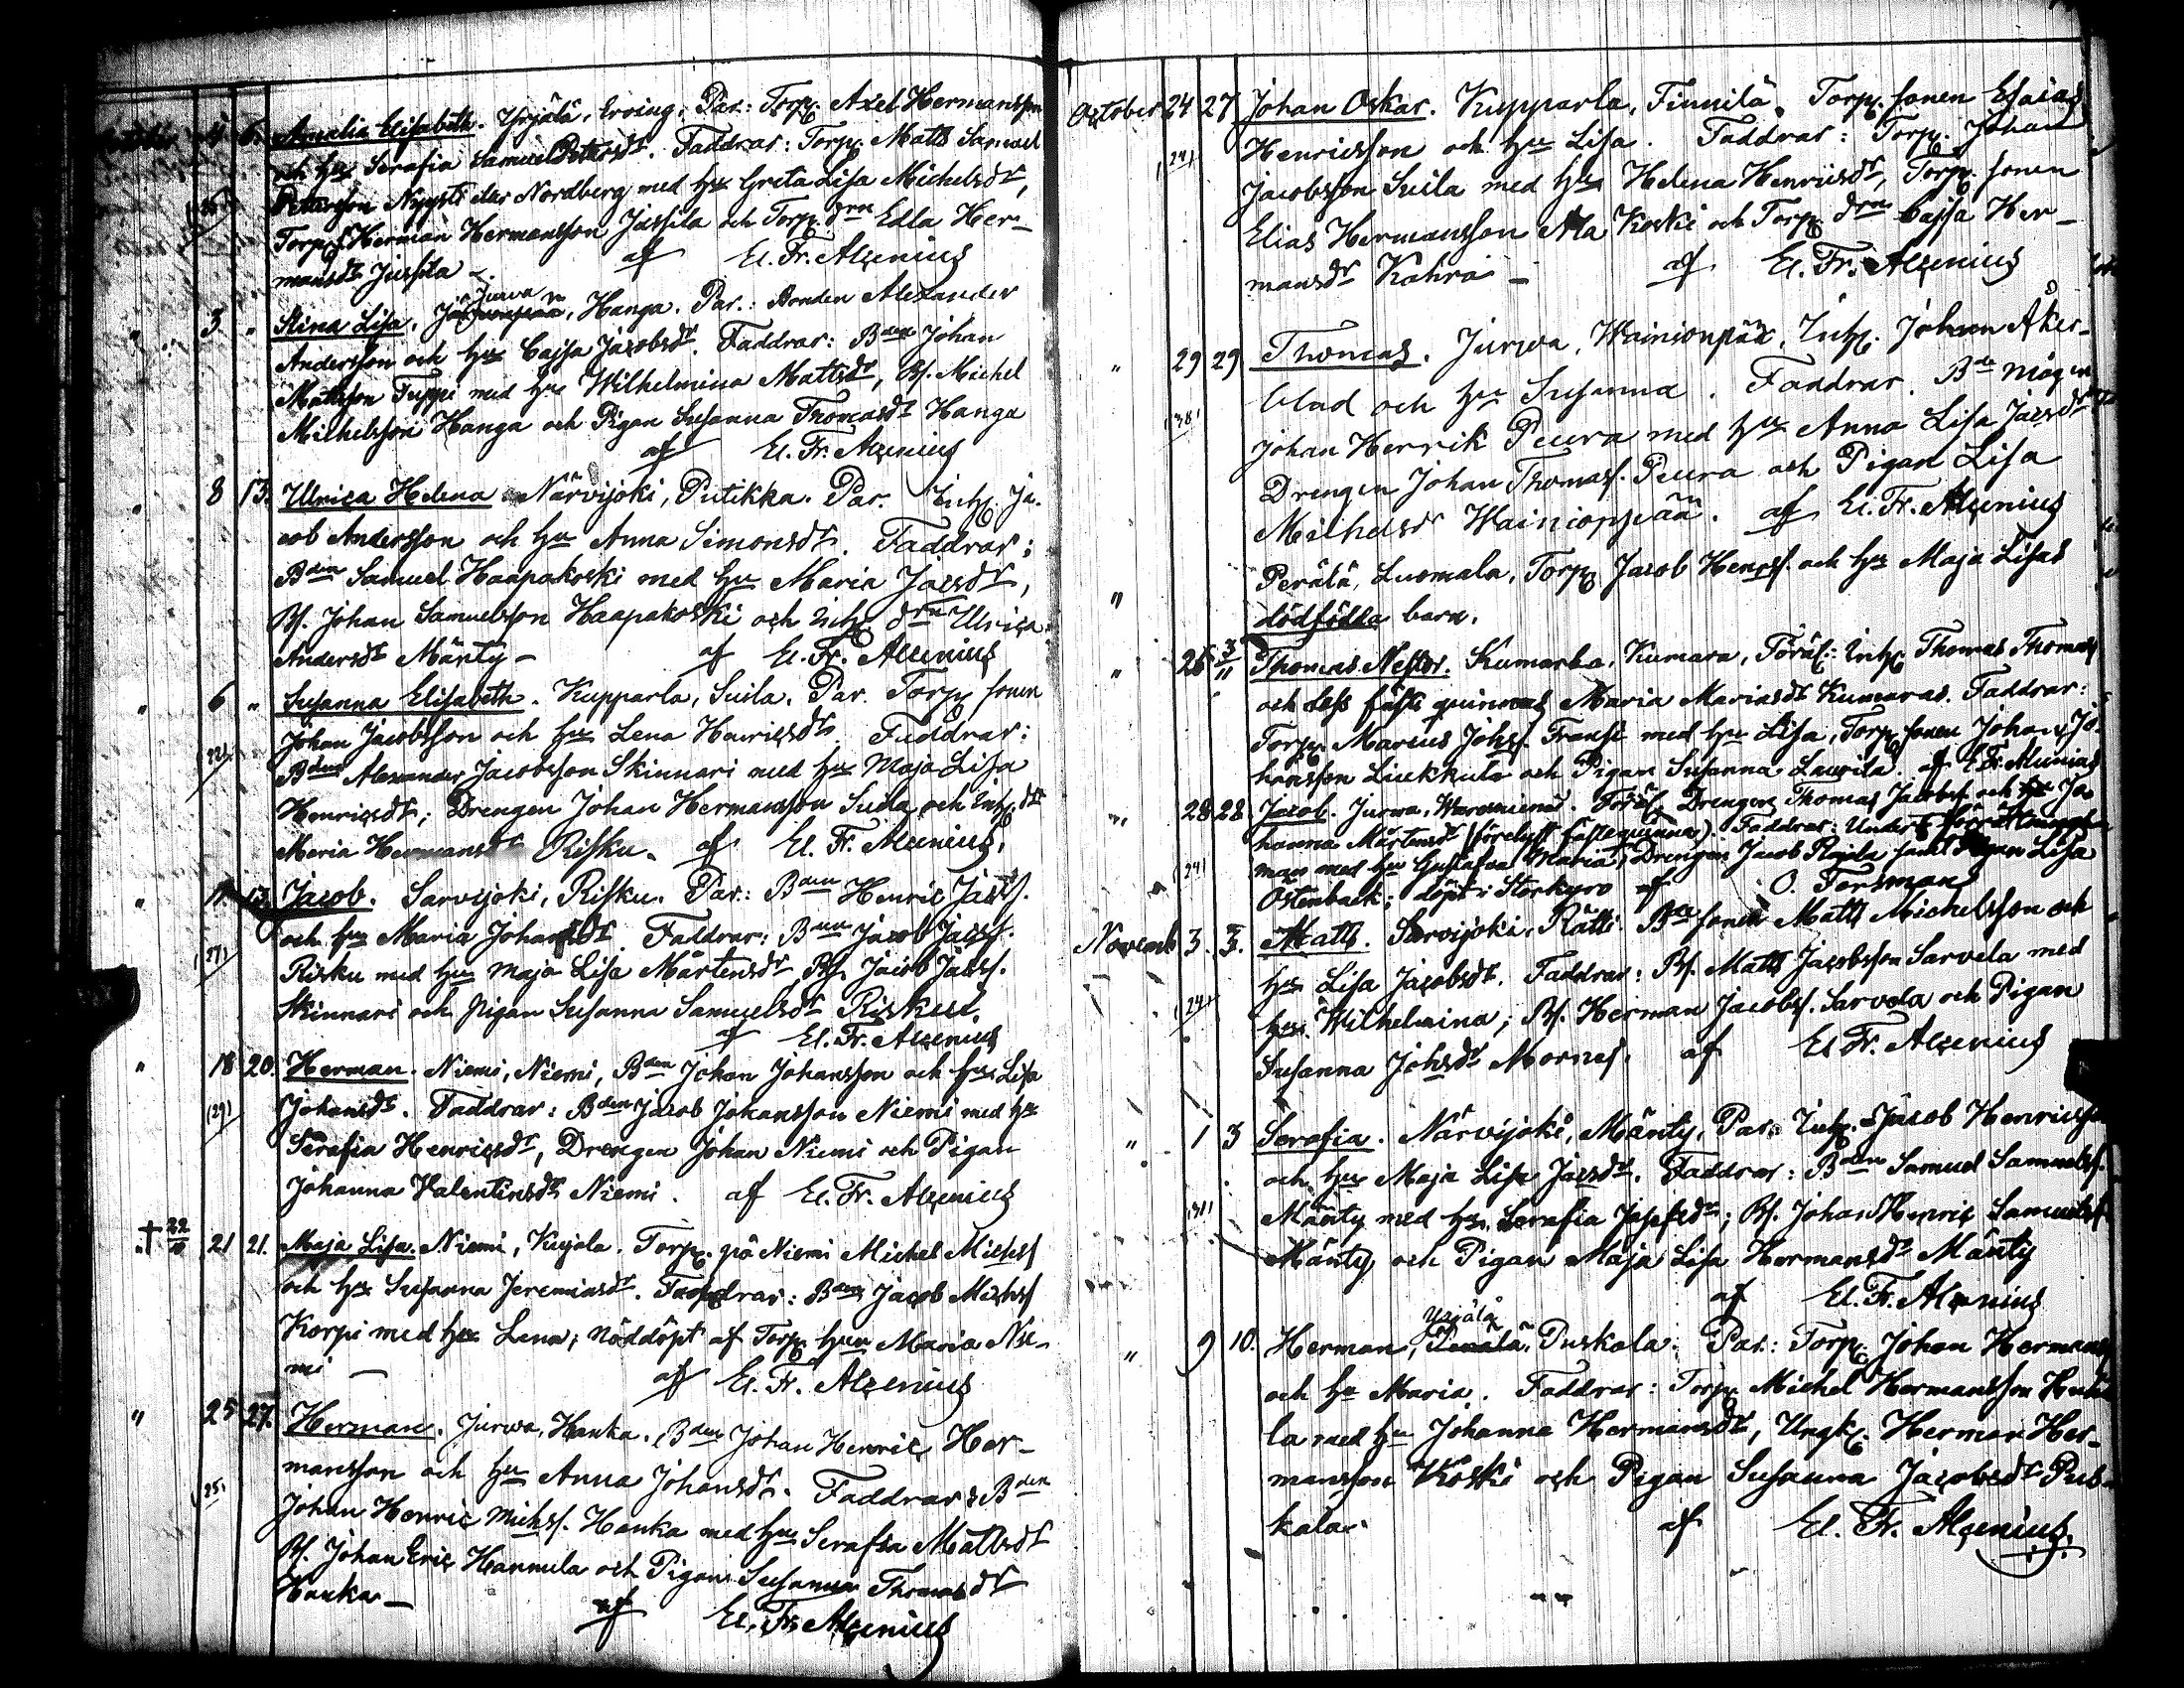 4 6. Amalia Elisabeth. Yrjälä, Erving, Par: Torp. Axel Hermansson
och hu Serafia Samuel Petersdr. Faddrar: Torp. Matts Samuel
Petersson Nygård eller Nordberg med hu Greta Lisa Michelsdr,
Torp.s. Herman Hermansson Jussila och Torp. drn Edla Her-
mansdr Jussila -. af El. Fr. Alcenius
Jurva
" 3 " Stina Lisa. Hanga. Par.: Bonden Alexander
Andersson och hu Cajsa Jacobsdr. Faddrar: Bden Johan
Mattsson Tuppi med hu Wilhelmina Mattsdr, Bs. Michel
Michelsson Hanga och Pigan Susanna Thomasdr Hanga
af El. Fr. Alcenius
" 8 13. Ulrica Helena Närvijoki, Putikka. Par. Inh. Ja-
cob Andersson och hu Anna Simonsdr. Faddrar:
Bden Samuel Haapakoski med hu Maria Jacsdr,
Bs. Johan Samuelsson Haapakoski och Inh. drn Ulrica
Andersdr Mänty - af El. Fr. Alcenius
" 6 " Susanna Elisabeth. Kupparla, Suila. Par. Torp. sonen
Johan Jacobsson och hu Lena Henricsdr. Faddrar:
Bden Alexander Jacobsson Skinnari med hu Maja Lisa
Henricsdr; Drengen Johan Hermansson Suila och Inh. dr
Maria Hermansdr Risku. af El. Fr. Alcenius.
" 11 13. Jacob. Sarvijoki, Risku. Par: Bden Henric Jacs.
(27) och hu Maria Johansdr. Faddrar: Bden Jacob Jacss.
Risku med hu Maja Lisa Mårtensdr, Bs. Jacob Jacss.
Skinnari och Pigan Susanna Samuelsdr Risku.
af El. Fr. Alcenius
" 18 20. Herman. Niemi, Niemi, Bden Johan Johansson och hu Lisa
(29) Johansdr. Faddrar: Bden Jacob Johansson Niemi med hu
Serafia Henricsdr, Drengen Johan Niemi och Pigan
Johanna Valentinsdr Niemi. af El. Fr. Alcenius
† 22/10 21 21. Maja Lisa. Niemi, Kujala. Torp. på Niemi Michel Michss
och hu Susanna Jeremiasdr. Faddrar: Bden Jacob Michss
Korpi med hu Lena; nöddöpt af Torp. hun Maria Nie-
mi - af El. Fr. Alcenius
" 25 27. Herman. Jurva, Hanka. Bden Johan Henric Her-
mansson och hu Anna Johansdr. Faddrar: Bden
(25) Johan Henric Michss. Hanka med hu Serafia Mattsdr
Bs. Johan Eric Hannula och Pigan Susanna Thomasdr
Hanka - af El. Fr. Alcenius
October 24 27 Johan Oskar. Kupparla, Finnilä. Torp. sonen Esaias
(24) Henricsson och hu Lisa. Faddrar: Torp. Johan
Jacobsson Suila med hu Helena Henricsdr, Torp. sonen
Elias Hermansson Ala Koski och Torp. drn Cajsa Her-
mansdr Kahra - af El. Fr. Alcenius
" 29 29 Thomas. Jurva, Wainionpää, Inh. Johan Åker-
blad och hu Susanna. Faddrar. Bde mågen
(38) Johan Henrik Peura med hu Anna Lisa Jacsdr
Drengen Johan Thomass. Peura och Pigan Lisa
Michelsdr Wainionpää. af El. Fr. Alcenius
" Perälä, Luomala, Torp. Jacob Henrss. och hu Maja Lisas
dödfödda barn.
" 26 3/11 Thomas Nestor. Kumarla, Kumara, Föräl: Inh. Thomas Thomass
och dess fäste quinnas Maria Mariasdr Kumaras. Faddrar:
Torp. Marcus Johss. Fransi med hu Lisa, Torp. sonen Johan Jo-
hansson Liukkula och Pigan Susanna Laurila. af El. Fr. Alcenius
" 28 28. Jacob. Jurva, Föräl. Drengen Thomas Jacobss. och Jo
hanna Mårtensdr (förelyst fästequinna). Faddrar: Under
(24) man med hu Gustafva Maria, Drengen Jacob Rajala samt Pigan Lisa
Östenback; döpt i Storkyro af O. Forsman
Novemb 3. 3. Matts. Sarvijoki, Rätti. Bde sonen Matts Michelsson och
hu Lisa Jacobsdr. Faddrar: Bs. Matts Jacobsson Sarvela med
(24) hu Wilhelmina; Bs. Herman Jacobss. Sarvela och Pigan
Susanna Johsdr Mornes. af El Fr. Alcenius
" 1 3 Serafia. Närvijoki, Mänty, Par. Inh. Jacob Henricsson
och hu Maja Lisa Jacsdr. Faddrar: Bden Samuel Samuelss.
Mänty med hu Serafia Josefsdr; Bs. Johan Henric Samuelss
Mänty och Pigan Maja Lisa Hermansdr Mänty
af El. Fr. Alcenius
Yrjälä
" 9 10. Herman, Perälä, Puskala. Par.: Torp. Johan Hermanss
och hu Maria. Faddrar: Torp. Michel Hermansson
la med hu Johanna Hermansdr, Ungk. Herman Her-
mansson Koski och Pigan Susanna Jacobsdr Pus-
kala. af El. Fr. Alcenius.